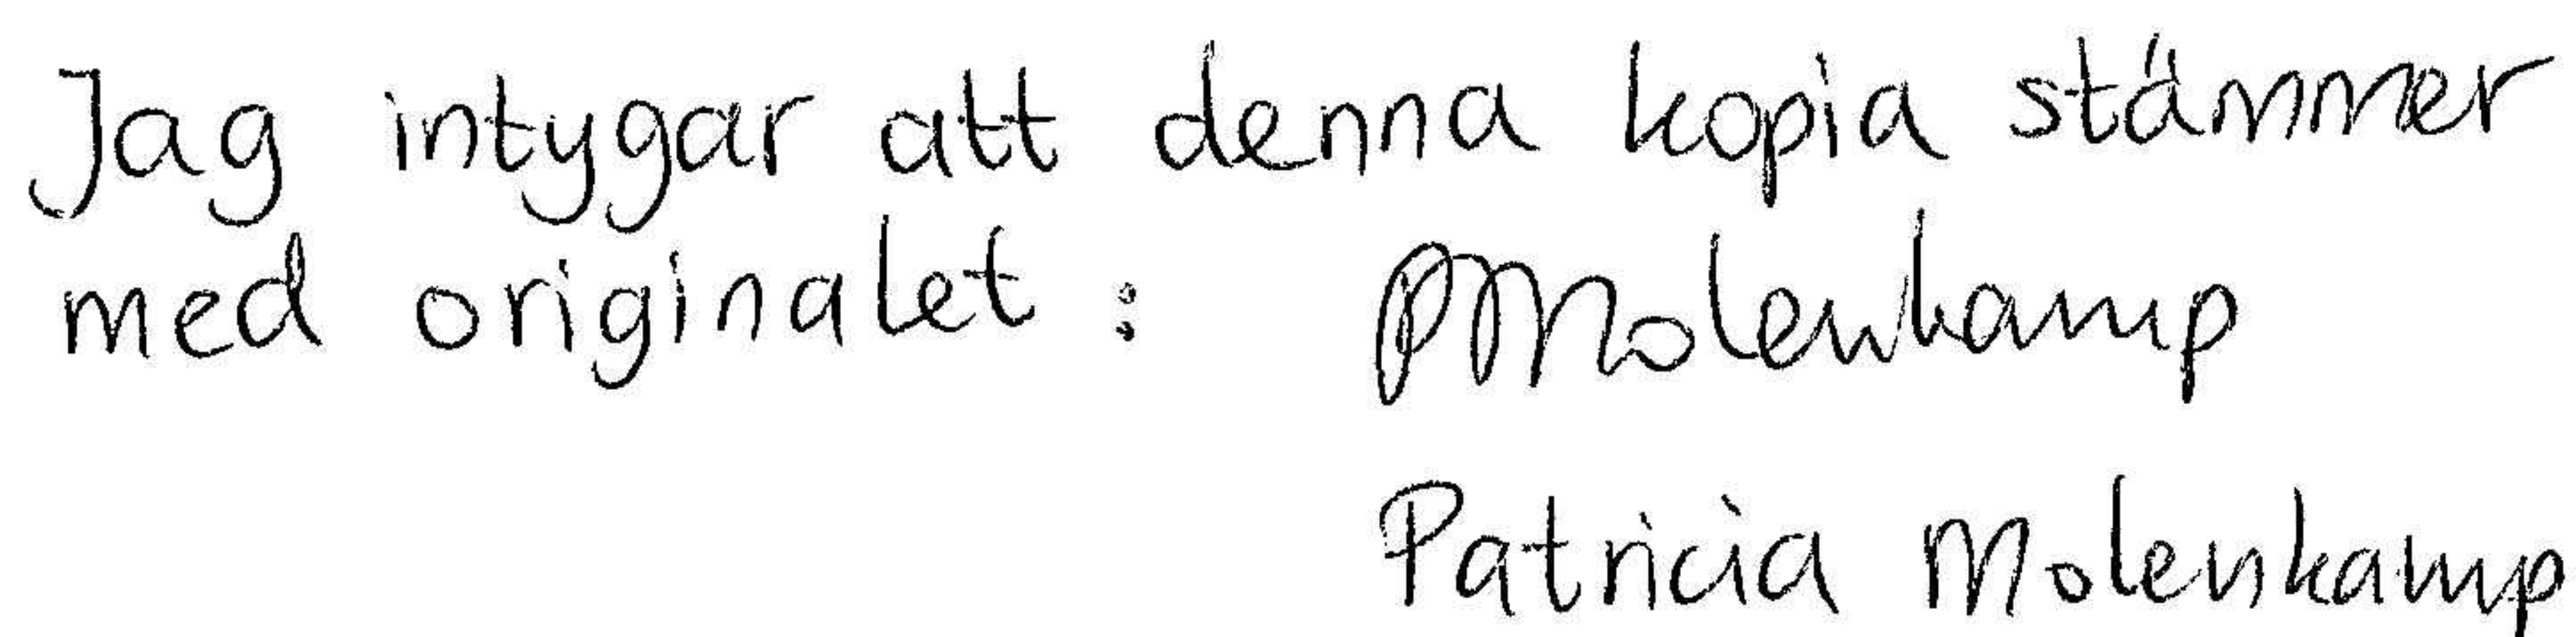 Jag intygar att denna kopia stämmer
med originalet : PMolenkamp
Patricia Molenkamp